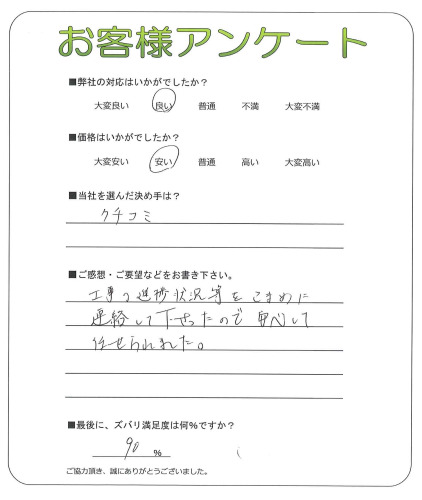 お客様アンケート
■弊社の対応はいかがでしたか？
大変良い 良い 普通 不満 大変不満
■価格はいかがでしたか？
大変安い 安い 普通 高い 大変高い
■当社を選んだ決め手は？
クチコミ
■ご感想・ご要望などをお書き下さい。
工事の進捗状況等をこまめに
連絡して下さったので安心して
任せられました。
■最後に、ズバリ満足度は何%ですか？
90 %
ご協力頂き、誠にありがとうございました。